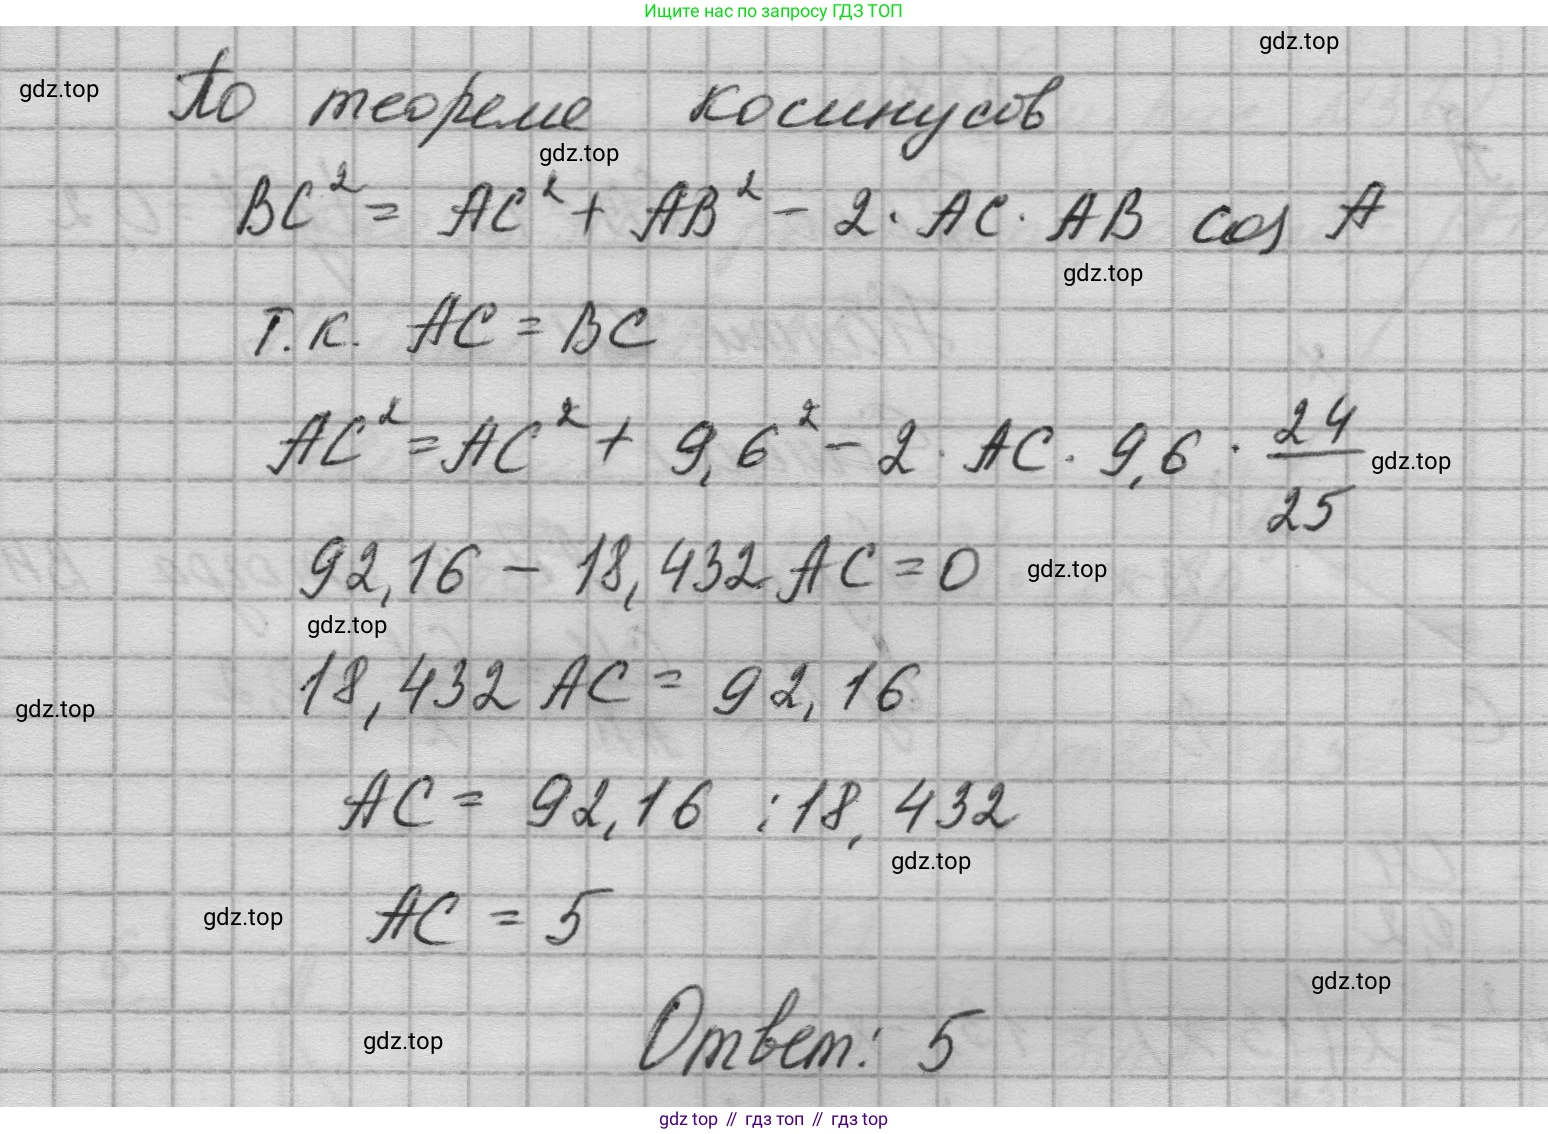 Ищите нас по запросу ГДЗ ТОП
gdz.top
gdz.top
По теореме косинусов
gdz.top
BC² = AC² + AB² - 2 · AC · AB cos A
gdz.top
т.к. AC = BC
AC² = AC² + 9,6² - 2 · AC · 9,6 · 24/25
gdz.top
92,16 - 18,432 AC = 0
gdz.top
gdz.top
18,432 AC = 92,16
gdz.top
AC = 92,16 : 18,432
gdz.top
AC = 5
gdz.top
gdz.top
Ответ: 5
gdz.top
gdz top // гдз топ // gdz top